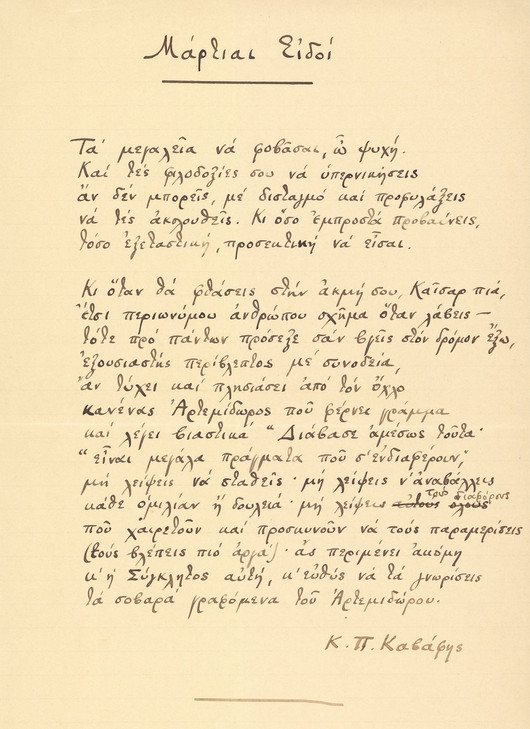 Μάρτιαι Εἰδοί
Τά μεγαλεῖα νά φοβᾶσαι, ὦ ψυχή.
Καί τές φιλοδοξίες σου νά ὑπερνικήσεις
ἄν δέν μπορεῖς, μέ δισταγμό καί προφυλάξεις
νά τές ἀκολουθεῖς. Κι ὅσο ἐμπροστά προβαίνεις,
τόσο ἐξεταστική, προσεκτική νά εἶσαι.
Κι ὅταν θά φτάσεις στήν ἀκμή σου, Καῖσαρ πιά,
ἔτσι περιωνύμου ἀνθρώπου σχῆμα ὅταν λάβεις —
τότε πρό πάντων πρόσεξε σάν βγεῖς στόν δρόμον ἔξω,
ἐξουσιαστής περίβλεπτος μέ συνοδεία,
ἄν τύχει καί πλησιάσει ἀπό τόν ὄχλο
κανένας Ἀρτεμίδωρος ποῦ φέρνει γράμμα
καί λέγει βιαστικά “ Διάβασε ἀμέσως τοῦτα·
“ εἶναι μεγάλα πράγματα ποῦ σ' ἐνδιαφέρουν„
μή λείψεις νά σταθεῖς· μή λείψεις ν' ἀναβάλλεις
κάθε ὁμιλίαν ἤ δουλειά· μή λείψεις τούς διαφόρους
ποῦ χαιρετοῦν καί προσκυνοῦν νά τούς παραμερίσεις
(τούς βλέπεις πιό ἀργά)· ἄς περιμένει ἀκόμη
κ' ἡ Σύγκλητος αὐτή, κ' εὐθύς νά τά γνωρίσεις
τά σοβαρά γραφόμενα τοῦ Ἀρτεμιδώρου.
Κ. Π. Καβάφης